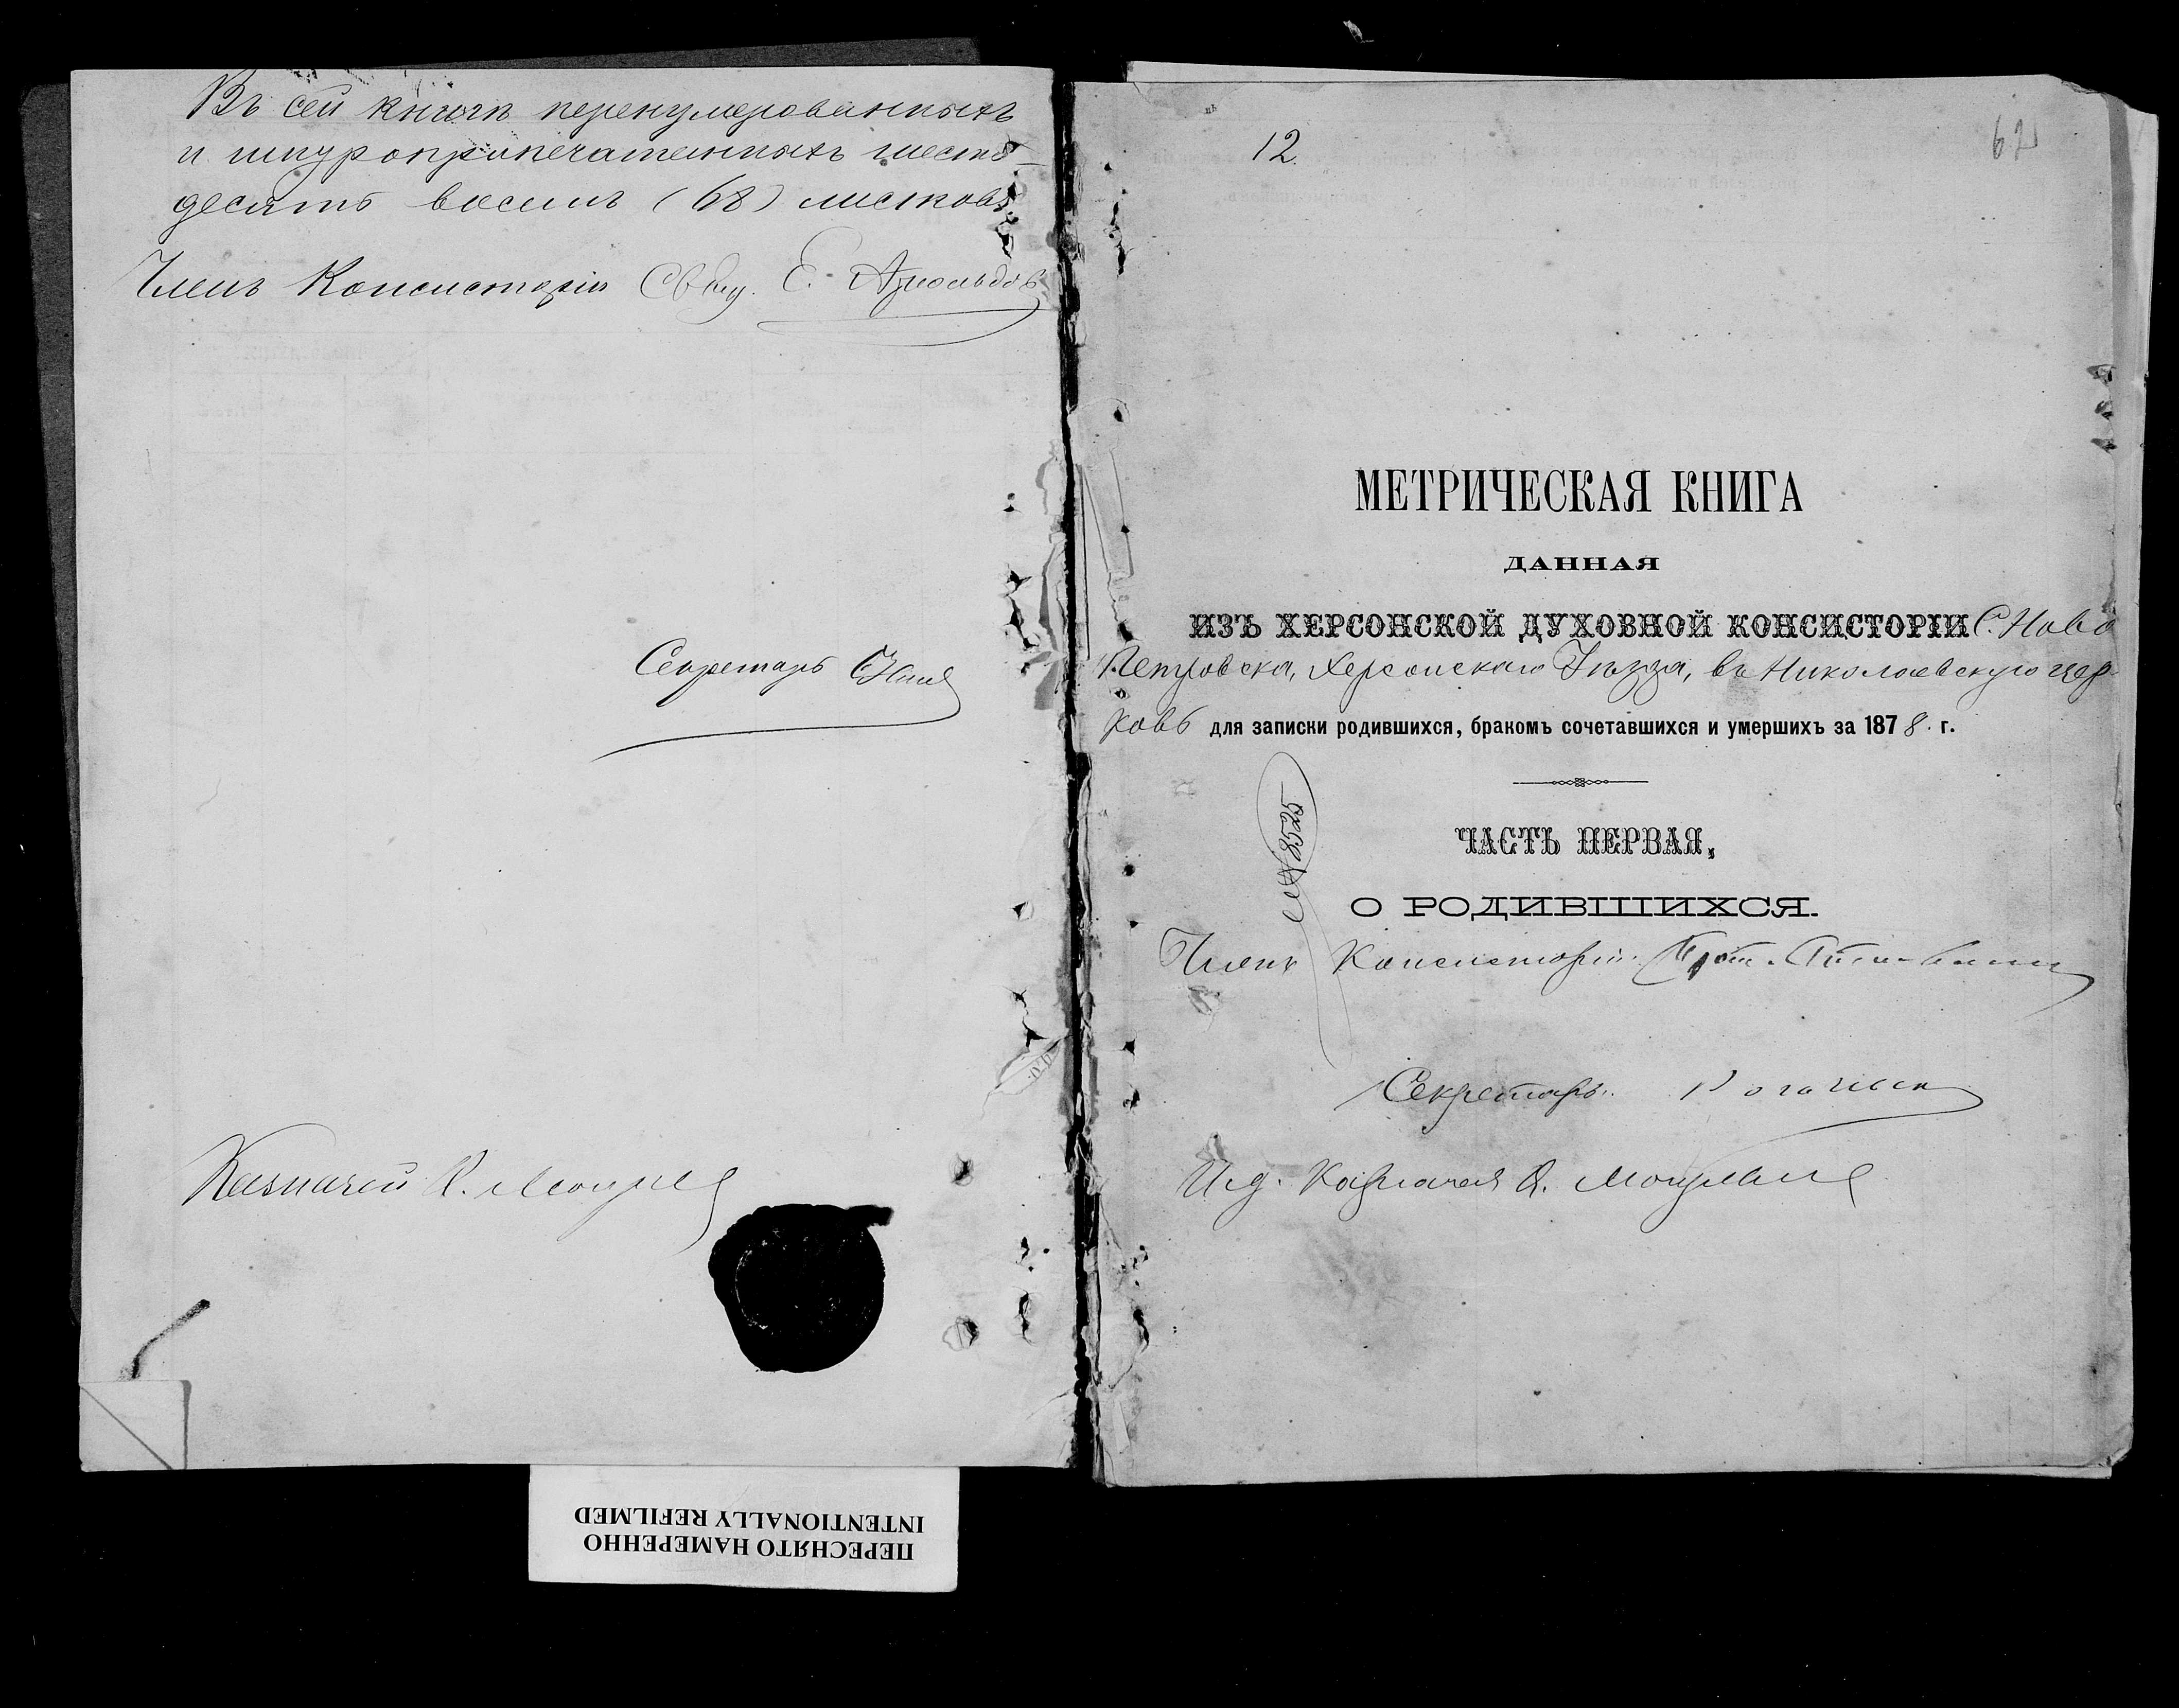 Въ сей книгѣ перенумерованныхъ
и шнуроприпечатанныхъ шесть-
десятъ восемь (68) листковъ
Членъ Консисторіи Свящ. Е. Арнольдовъ
Секретарь
Казначей
12.
62
МЕТРИЧЕСКАЯ КНИГА
ДАННАЯ
ИЗЪ ХЕРСОНСКОЙ ДУХОВНОЙ КОНСИСТОРІИ С. Ново
Петровска, Херсонскаго Уѣзда, въ Николаевскую цер-
ковь для записки родившихся, бракомъ сочетавшихся и умершихъ за 1878. г.
№ 8525
ЧАСТЬ ПЕРВАЯ,
О РОДИВШИХСЯ.
Членъ Консисторіи Прот.
Секретарь
И.д. Казначея
ПЕРЕСНЯТО НАМЕРЕННО
INTENTIONALLY REFILMED